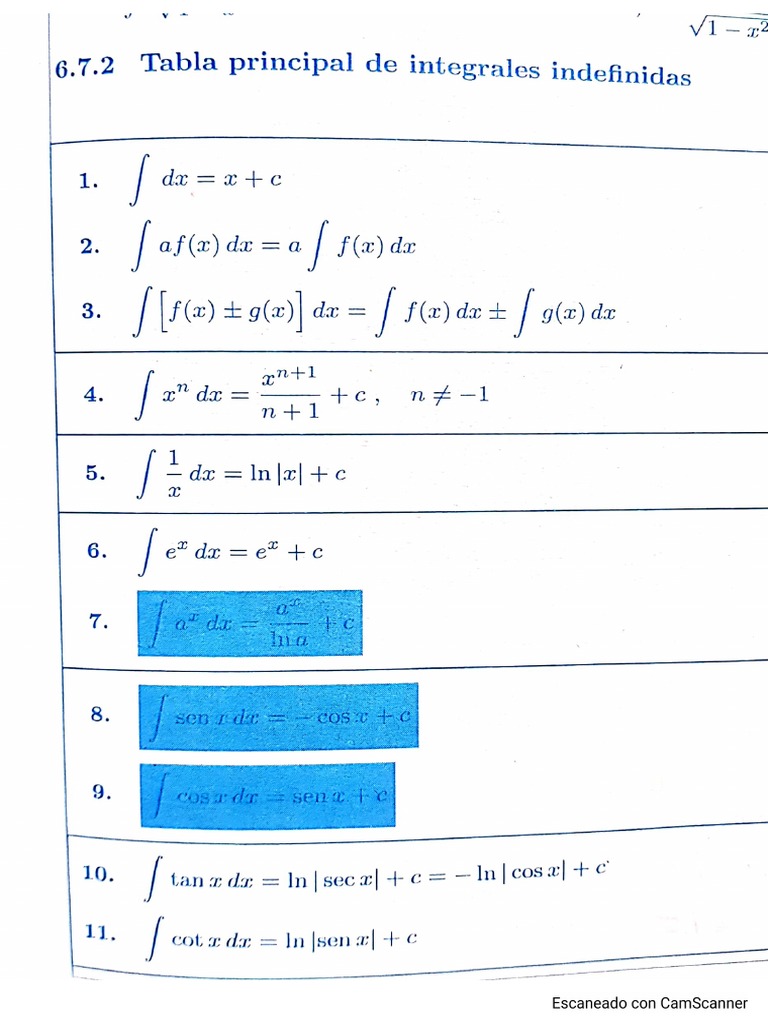 √1 − x²
6.7.2 Tabla principal de integrales indefinidas
1. ∫ dx = x + c
2. ∫ af(x) dx = a ∫ f(x) dx
3. ∫ [f(x) ± g(x)] dx = ∫ f(x) dx ± ∫ g(x) dx
4. ∫ xⁿ dx = xⁿ⁺¹/(n + 1) + c , n ≠ −1
5. ∫ 1/x dx = ln |x| + c
6. ∫ eˣ dx = eˣ + c
7. ∫ aˣ dx = aˣ/ln a + c
8. ∫ sen x dx = − cos x + c
9. ∫ cos x dx = sen x + c
10. ∫ tan x dx = ln | sec x| + c = − ln | cos x| + c
11. ∫ cot x dx = ln |sen x| + c
Escaneado con CamScanner